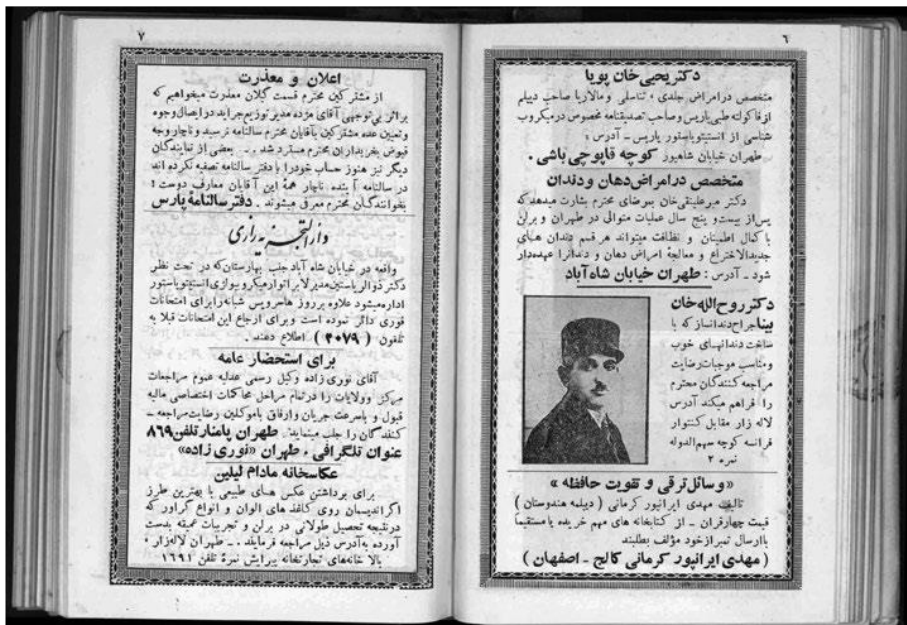 ٦
دکتر یحیی خان پویا
متخصص در امراض جلدی ، تناسلی و مالاریا صاحب دیپلم
از فاکولته طبی پاریس و صاحب تصدیقنامه مخصوص در میکروب
شناسی از انستیتو پاستور پاریس ـ آدرس :
طهران خیابان شاهپور کوچه قاپوچی باشی .
متخصص در امراض دهان و دندان
دکتر میر علینقی خان بمرضای محترم بشارت میدهد که
پس از بیست و پنج سال عملیات متوالی در طهران و برلن
با کمال اطمینان و نظافت میتواند هر قسم دندان های
جدیدالاختراع و معالجهٔ امراض دهان و دندانرا عهده‌دار
شود ـ آدرس : طهران خیابان شاه آباد
دکتر روح‌الله خان
بینا جراح دندانساز که با
ساخت دندانهای خوب
و مناسب موجبات رضایت
مراجعه کنندگان محترم
را فراهم میکند آدرس
لاله زار مقابل کنتوار
فرانسه کوچه سهم‌الدوله
نمره ۲
«وسائل ترقی و تقویت حافظه »
تالیف مهدی ایرانپور کرمانی ( دیپلمه هندوستان )
قیمت چهار قران ـ از کتابخانه های مهم خریده یا مستقیما
با ارسال تمبر از خود مؤلف بطلبند
( مهدی ایرانپور کرمانی کالج ـ اصفهان )
۷
اعلان و معذرت
از مشترکین محترم قسمت گیلان معذرت میخواهیم که
براثر بی‌توجهی آقای مژده مدیر توزیع جراید در ایصال وجوه
و تعیین عده مشترکین باقایان محترم سالنامه نرسید و ناچار وجه
قبوض بخریداران محترم مسترد شد . ـ بعضی از نمایندگان
دیگر نیز هنوز حساب خود را با دفتر سالنامه تصفیه نکرده اند
در سالنامه آینده ناچار همهٔ این آقایان معارف دوست !
بخوانندگان محترم معرفی میشوند . دفتر سالنامهٔ پارس
دارالتجزیه رازی
واقعه در خیابان شاه آباد جنب بهارستان که در تحت نظر
دکتر ذوالریاستین مدیر لابراتوار میکروبیولژی انستیتو پاستور
اداره میشود علاوه بر روز ها سرویس شبانه را برای امتحانات
فوری دائر نموده است و برای ارجاع این امتحانات قبلا به
تلفون ( ۲۰۷۹ ) اطلاع دهند .
برای استحضار عامه
آقای نوری زاده وکیل رسمی عدلیه عموم مراجعات
مرکز و ولایات را در تمام مراحل محاکمات اختصاصی مالیه
قبول و با سرعت جریان و ارفاق با موکلین رضایت مراجعه ـ
کنندگان را جلب مینماید. طهران پامنار تلفن ۸۶۹
عنوان تلگرافی ، طهران «نوری زاده»
عکاسخانه مادام لیلین
برای برداشتن عکس های طبیعی با بهترین طرز
اگراندیسمان روی کاغذ های الوان و انواع گراور که
در نتیجه تحصیل طولانی در برلن و تجربیات عمیقه بدست
آورده بآدرس ذیل مراجعه فرمایند . ـ طهران لاله‌زار ،
بالا خانه‌های تجارتخانه پیرایش نمرهٔ تلفن ۱۶۹۱